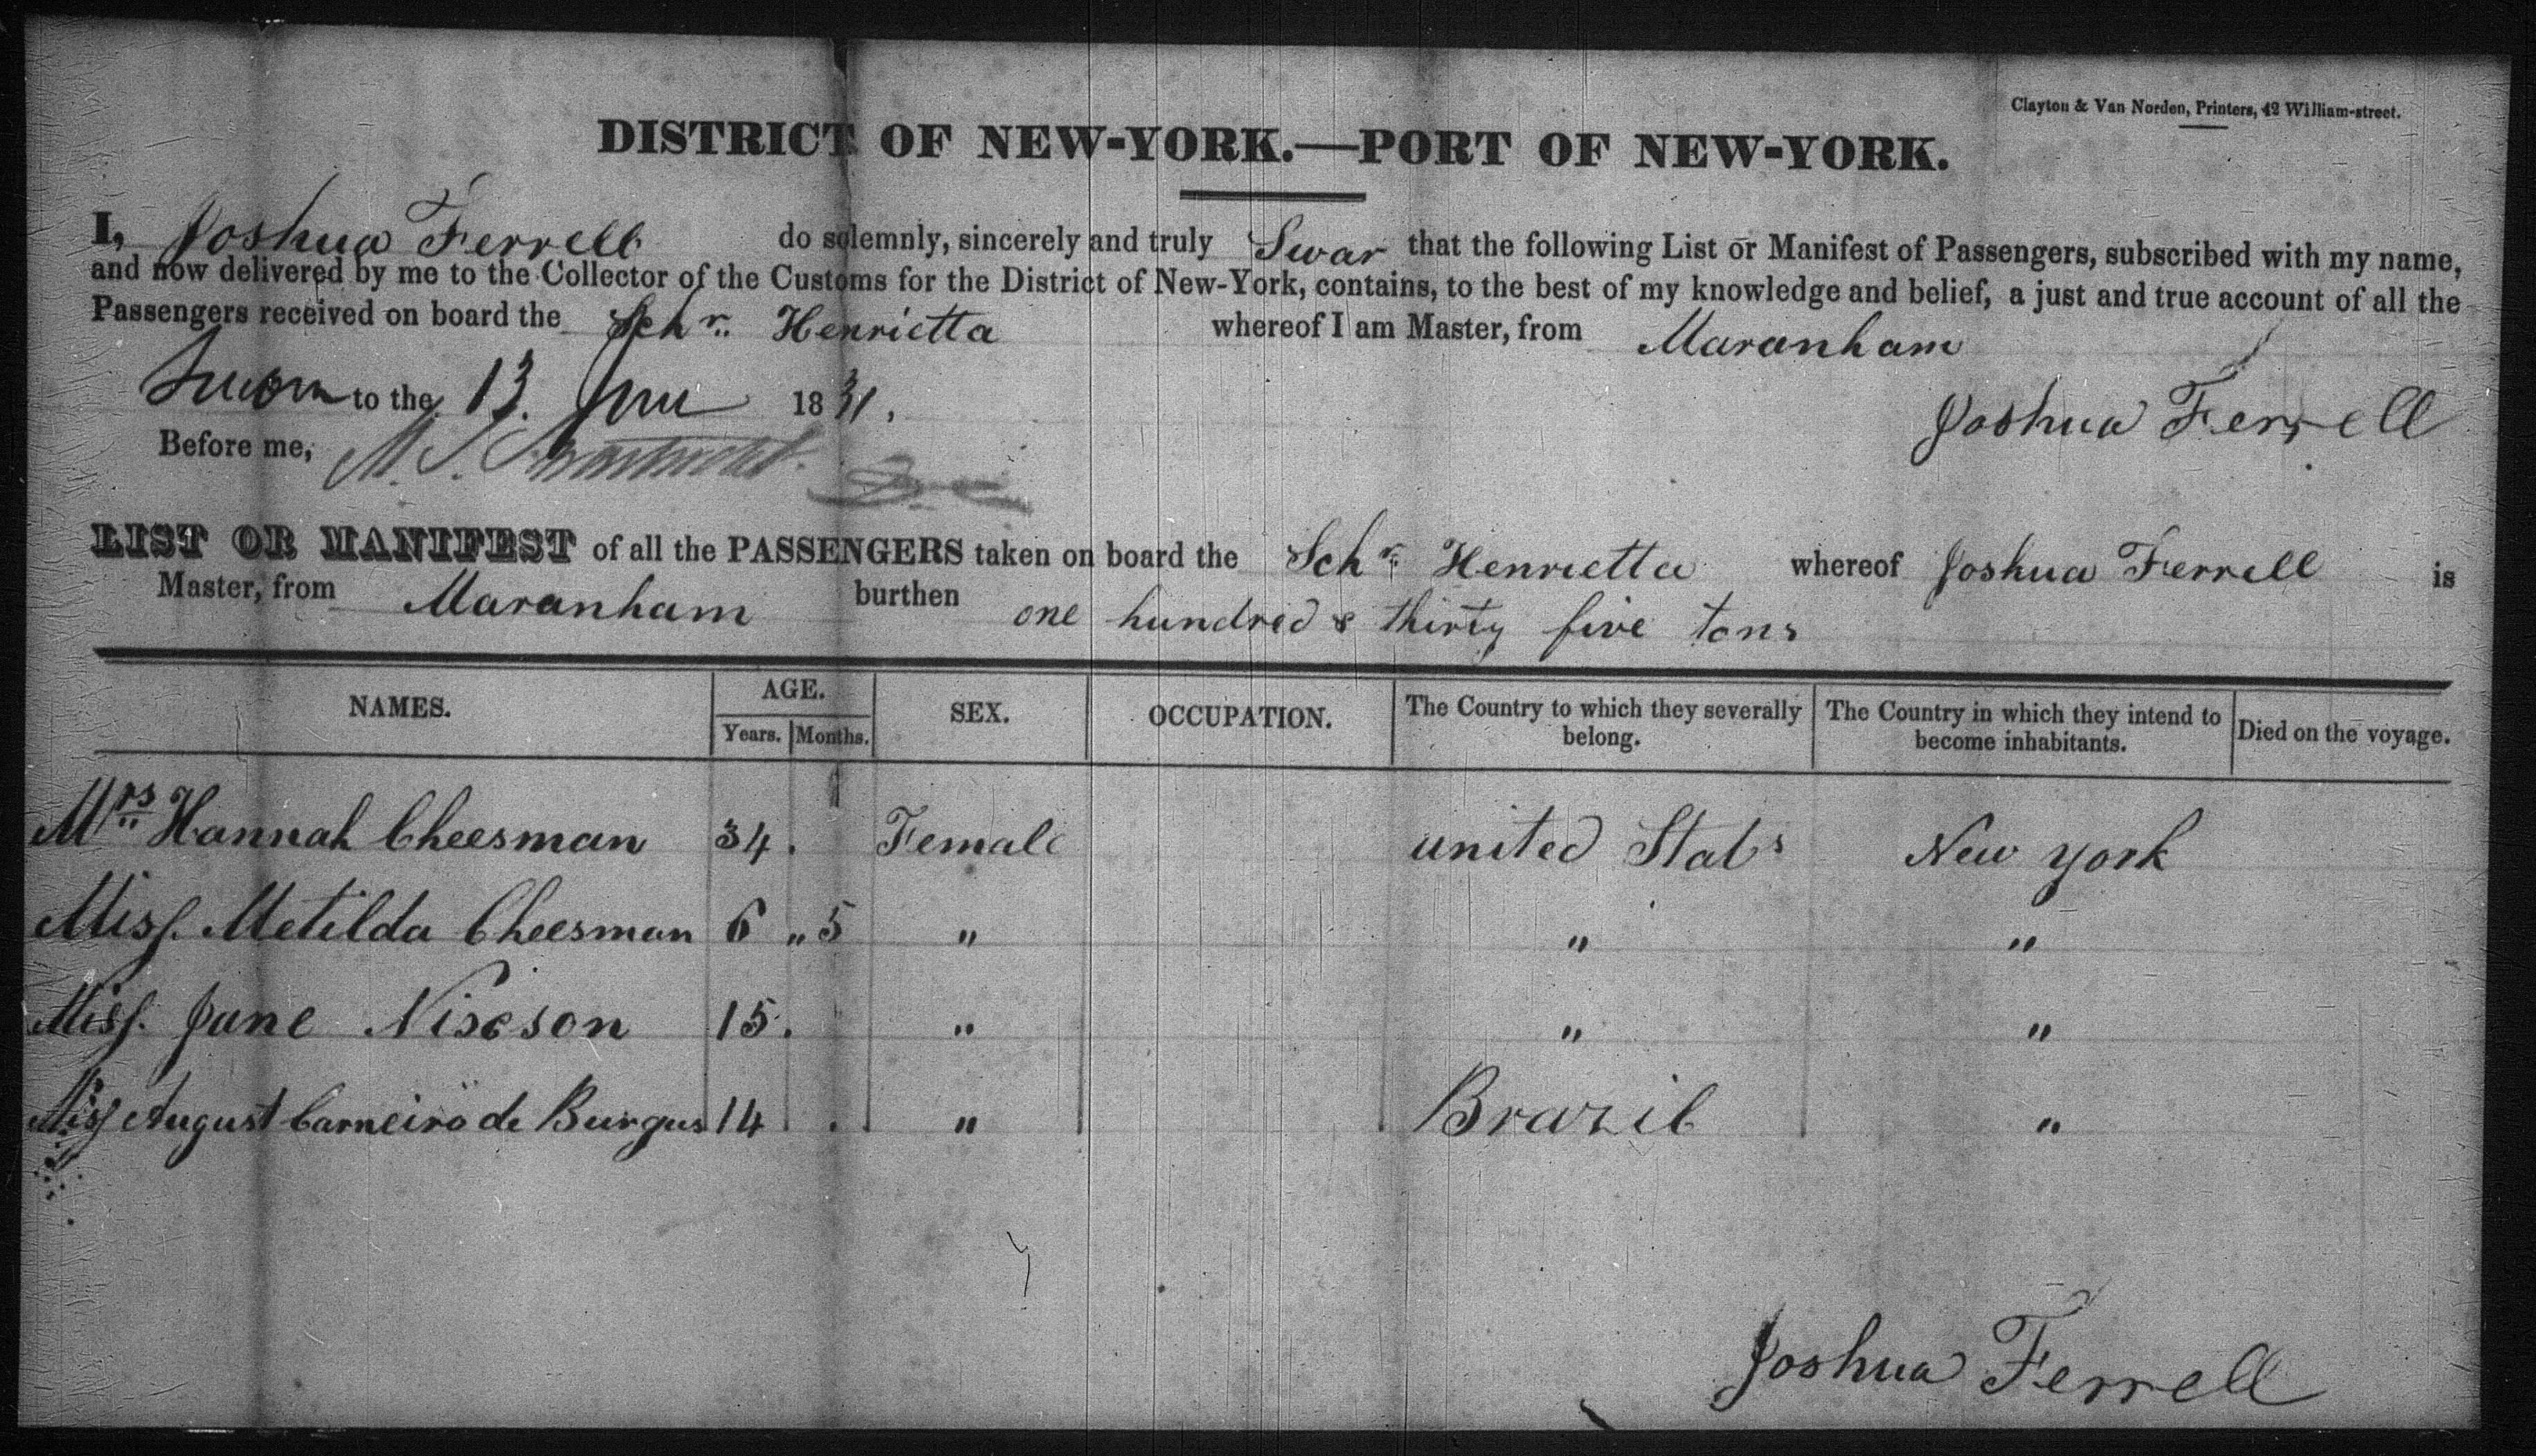 Clayton & Van Norden, Printers, 42 William-street.
DISTRICT OF NEW-YORK.—PORT OF NEW-YORK.
I, Joshua Ferrell do solemnly, sincerely and truly Swar that the following List or Manifest of Passengers, subscribed with my name,
and now delivered by me to the Collector of the Customs for the District of New-York, contains, to the best of my knowledge and belief, a just and true account of all the
Passengers received on board the Schr. Henrietta whereof I am Master, from Maranham
Sworn to the 13. June 1831.
Joshua Ferrell
Before me,
LIST OR MANIFEST of all the PASSENGERS taken on board the Schr. Henrietta whereof Joshua Ferrell is
Master, from Maranham burthen one hundred & thirty five tons
NAMES. AGE. SEX. OCCUPATION. The Country to which they severally belong. The Country in which they intend to become inhabitants. Died on the voyage.
Years. Months.
Mrs Hannah Cheesman 34. Female united Stats New york
Miss. Metilda Cheesman 6 „ 5 " " "
Miss. Jane 15. " " "
Miss August Carneiro de Burgus 14 . " Brazil "
Joshua Ferrell